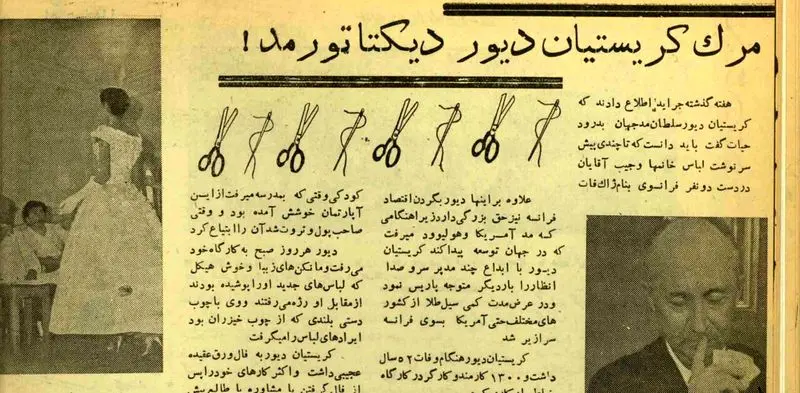 مرك كريستيان ديور ديكتاتور مد!
هفته گذشته جراید اطلاع دادند که
کریستیان دیور سلطان مد جهان بدرود
حیات گفت باید دانست که تا چندی پیش
سرنوشت لباس خانمها وجیب آقایان
در دست دو نفر فرانسوی بنام ژاك فات
علاوه براینها دیور بگردن اقتصاد
فرانسه نیز حق بزرگی دارد زیرا هنگامی
که مد آمریکا وهولیوود میرفت
که در جهان توسعه پیدا کند کریستیان
دیور با ابداع چند مد پر سر و صدا
انظار را باردیگر متوجه پاریس نمود
ودر عرض مدت کمی سیل طلا از کشور
های مختلف حتی آمریکا بسوی فرانسه
سرازیر شد
کریستیان دیور هنگام وفات ۵۲ سال
داشت و ۱۳۰۰ کارمند و کارگر در کارگاه
کودکی وقتی که بمدرسه میرفت از این
آپارتمان خوشش آمده بود و وقتی
صاحب پول و ثروت شد آن را ابتیاع کرد
دیور هر روز صبح به کارگاه خود
می رفت و مانکن های زیبا و خوش هیکل
که لباس های جدید اورا پوشیده بودند
از مقابل او رژه می رفتند ووی با چوب
دستی بلندی که از چوب خیزران بود
ایرادهای لباس را میگرفت
کریستیان دیور به فال ورق عقیده
عجیبی داشت و اکثر کارهای خود را پس
از فال گرفتن یا مشاوره با طالع بین